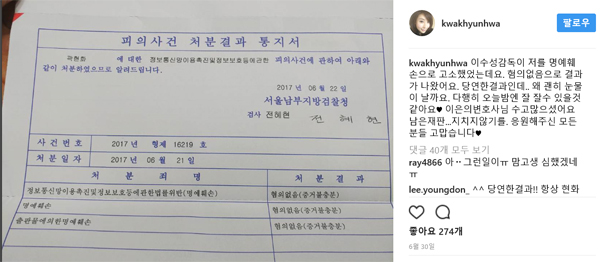 피의사건 처분결과 통지서
곽현화 에 대한 정보통신망이용촉진및정보보호등에관한 피의사건에 관하여 아래와
같이 처분하였으므로 알려드립니다.
2017 년 06 월 22 일
서울남부지방검찰청
검사 전혜현 전혜현
사건번호 2017 년 형제 16219 호
처분일자 2017 년 06 월 21 일
처분죄명 처분결과
정보통신망이용촉진및정보보호등에관한법률위반(명예훼손) 혐의없음(증거불충분)
명예훼손 혐의없음(증거불충분)
출판물에의한명예훼손 혐의없음(증거불충분)
kwakhyunhwa
팔로우
kwakhyunhwa 이수성감독이 저를 명예훼
손으로 고소했었는데요. 혐의없음으로 결과
가 나왔어요. 당연한결과인데.. 왜 괜히 눈물
이 날까요. 다행히 오늘밤엔 잘 잘수 있을것
같아요♥ 이은의변호사님 수고많으셨어요
남은재판...지치지않기를. 응원해주신 모든
분들 고맙습니다♥
댓글 40개 모두 보기
ray4866 아‥그런일이ㅠ 맘고생 심했겠네
ㅠ
lee.youngdon_ ^^ 당연한결과!! 항상 현화
좋아요 274개
6월 30일